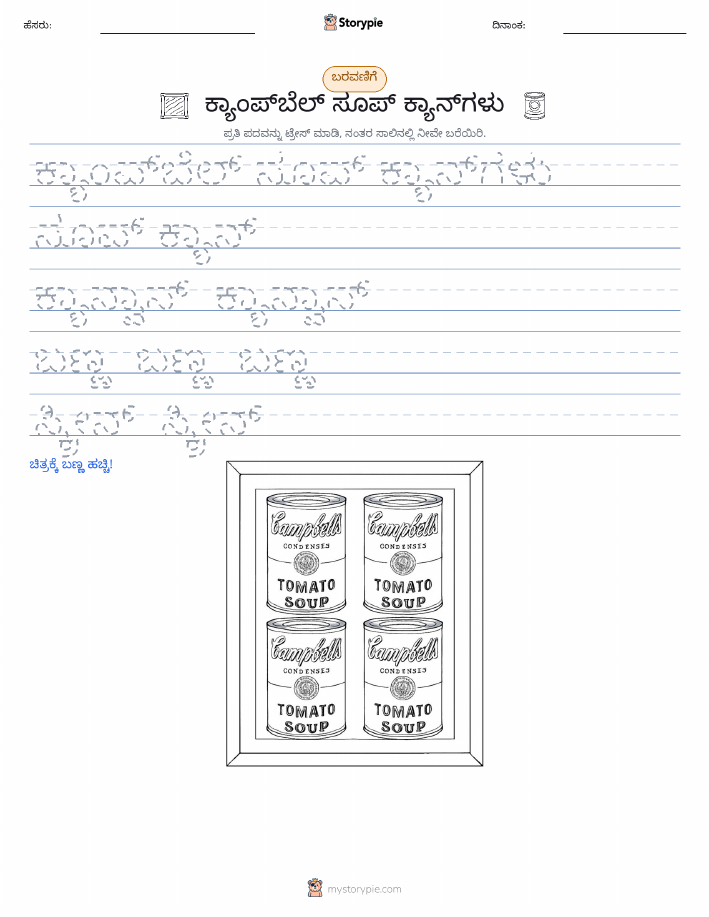 ಹೆಸರು:
Storypie
ದಿನಾಂಕ:
ಬರವಣಿಗೆ
ಕ್ಯಾಂಪ್‌ಬೆಲ್ ಸೂಪ್ ಕ್ಯಾನ್‌ಗಳು
ಪ್ರತಿ ಪದವನ್ನು ಟ್ರೇಸ್ ಮಾಡಿ, ನಂತರ ಸಾಲಿನಲ್ಲಿ ನೀವೇ ಬರೆಯಿರಿ.
ಕ್ಯಾಂಪ್‌ಬೆಲ್ ಸೂಪ್ ಕ್ಯಾನ್‌ಗಳು
ಸೂಪ್ ಕ್ಯಾನ್
ಕ್ಯಾನ್ವಾಸ್ ಕ್ಯಾನ್ವಾಸ್
ಬಣ್ಣ ಬಣ್ಣ ಬಣ್ಣ
ಸ್ಕ್ರೀನ್ ಸ್ಕ್ರೀನ್
ಚಿತ್ರಕ್ಕೆ ಬಣ್ಣ ಹಚ್ಚಿ!
Campbells Campbells
CONDENSES CONDENSES
TOMATO TOMATO
SOUP SOUP
Campbells Campbells
CONDENSES CONDENSES
TOMATO TOMATO
SOUP SOUP
mystorypie.com